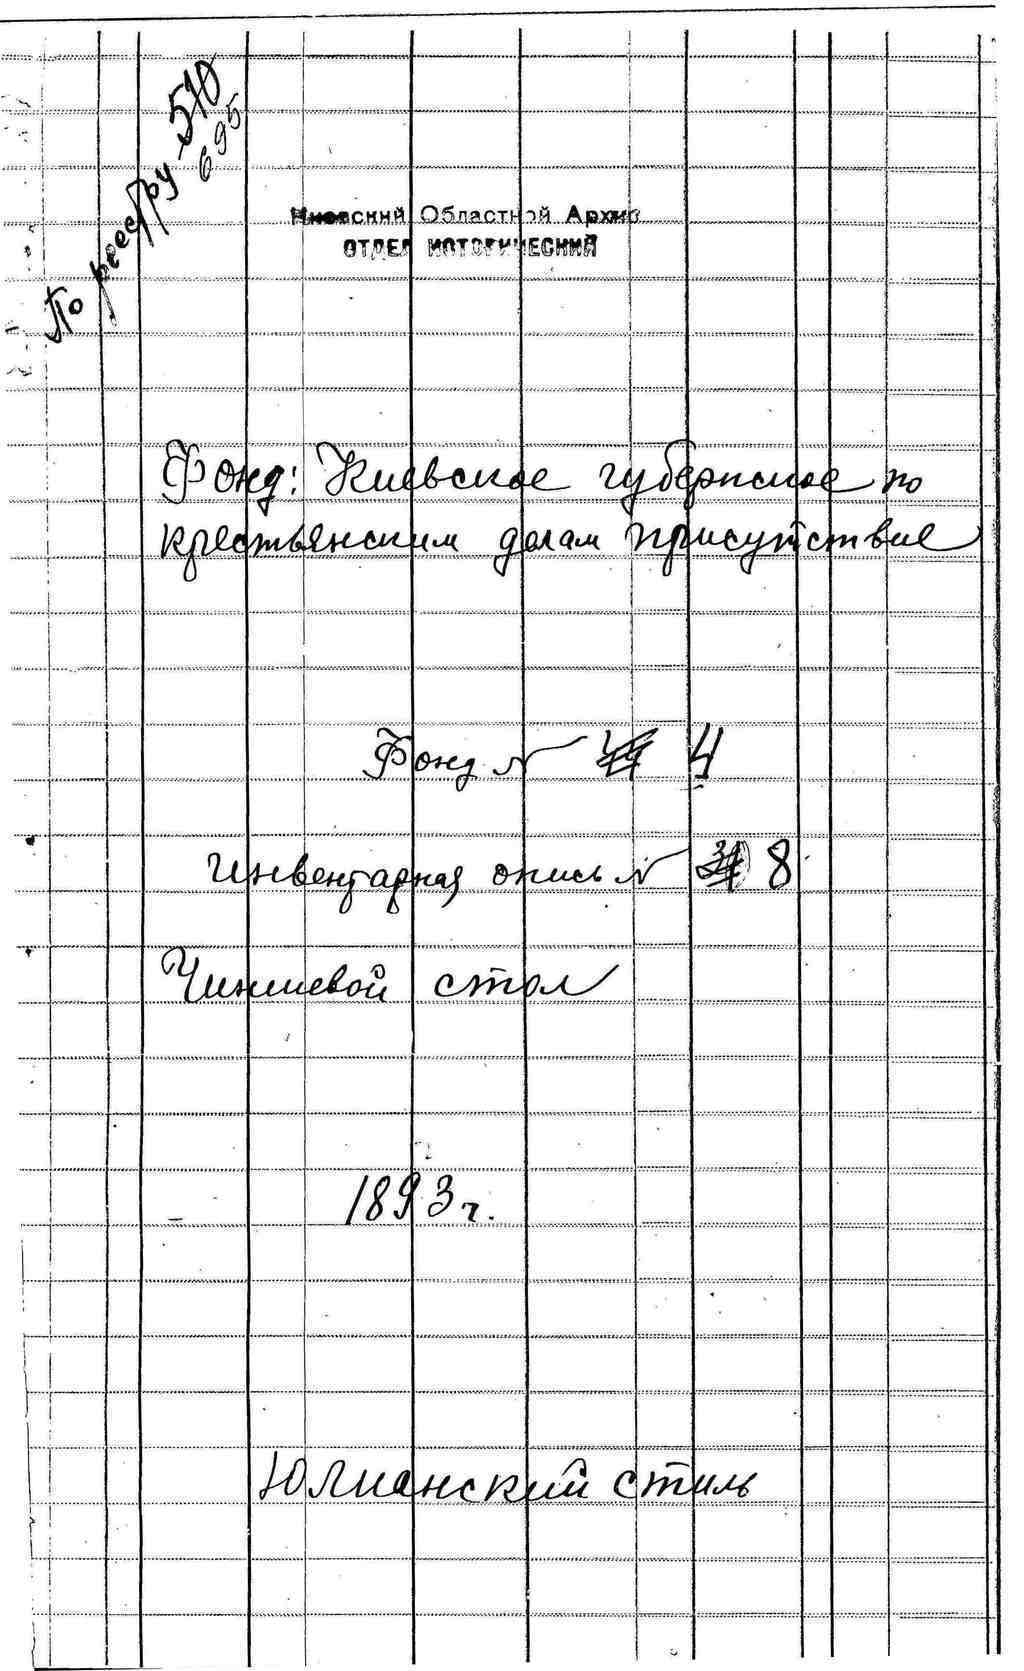 По реестру 510
695
Киевский Областной Архив
ОТДЕЛ ИСТОРИЧЕСКИЙ
Фонд: Киевское губернское по
крестьянским делам присутствие
Фонд № 4
Инвентарная опись № 8
Чиншевой стол
1893 г.
Юлианский стиль